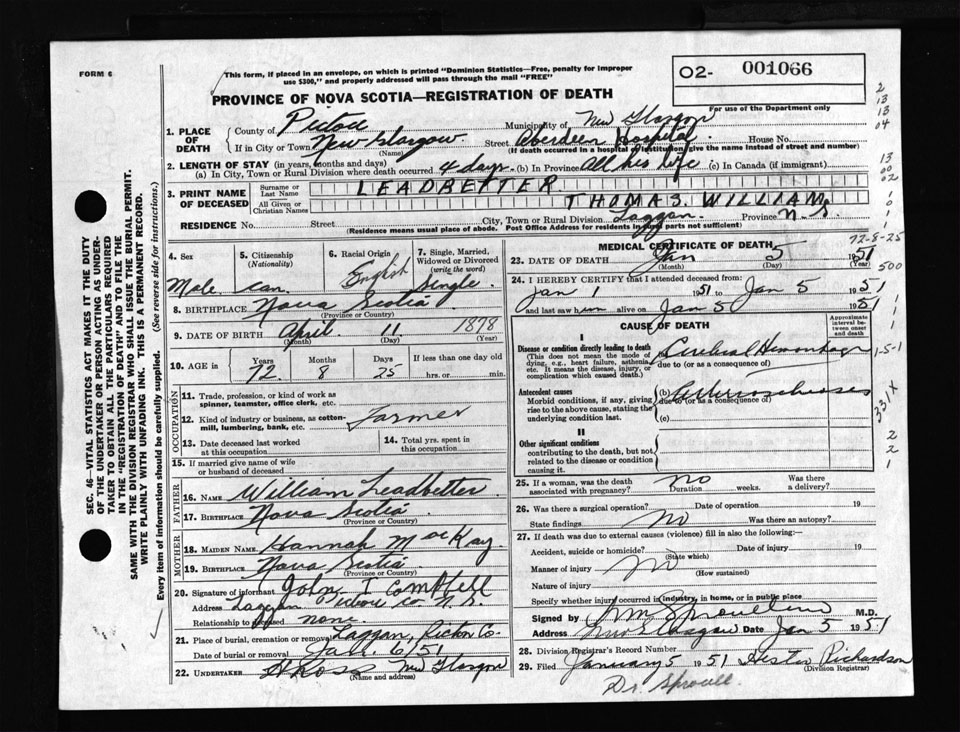 FORM 6
This form, if placed in an envelope, on which is printed "Dominion Statistics—Free, penalty for improper use $300," and properly addressed will pass through the mail "FREE"
O2- 001066
For use of the Department only
PROVINCE OF NOVA SCOTIA—REGISTRATION OF DEATH
1. PLACE OF DEATH
County of Pictou Municipality of New Glasgow
If in City or Town New Glasgow (Name) Street Aberdeen Hospital House No.
(If death occurred in a hospital or institution, give the name instead of street and number)
2. LENGTH OF STAY (in years, months and days)
(a) In City, Town or Rural Division where death occurred 4 days (b) In Province All his life (c) In Canada (if immigrant)
3. PRINT NAME OF DECEASED
Surname or Last Name LEADBETTER
All Given or Christian Names THOMAS. WILLIAM
RESIDENCE No. Street City, Town or Rural Division Laggan. Province N.S.
(Residence means usual place of abode. Post Office Address for residents in rural parts not sufficient)
4. Sex Male
5. Citizenship (Nationality) Can.
6. Racial Origin English
7. Single, Married, Widowed or Divorced (write the word) Single
8. BIRTHPLACE Nova Scotia
(Province or Country)
9. DATE OF BIRTH April 11 1878
(Month) (Day) (Year)
10. AGE in Years 72 Months 8 Days 25 If less than one day old hrs. or min.
OCCUPATION
11. Trade, profession, or kind of work as spinner, teamster, office clerk, etc.
12. Kind of industry or business, as cotton-mill, lumbering, bank, etc. Farmer
13. Date deceased last worked at this occupation
14. Total yrs. spent in this occupation
15. If married give name of wife or husband of deceased
FATHER
16. NAME William Leadbetter
17. BIRTHPLACE Nova Scotia
(Province or Country)
MOTHER
18. MAIDEN NAME Hannah MacKay
19. BIRTHPLACE Nova Scotia
(Province or Country)
20. Signature of informant John T Campbell
Address Laggan Pictou Co N.S.
Relationship to deceased none.
21. Place of burial, cremation or removal Laggan, Pictou Co-
Date of burial or removal Jan. 6/51
22. UNDERTAKER H Ross New Glasgow
(Name and address)
MEDICAL CERTIFICATE OF DEATH
72-8-25
23. DATE OF DEATH Jan 5 1951
(Month) (Day) (Year)
24. I HEREBY CERTIFY that I attended deceased from:
Jan 1 1951 to Jan 5 1951
and last saw him alive on Jan 5 1951
CAUSE OF DEATH
Approximate interval between onset and death
I
Disease or condition directly leading to death
(This does not mean the mode of dying, e.g., heart failure, asthenia, etc. It means the disease, injury, or complication which caused death.)
Cerebral Hemorrhage
due to (or as a consequence of)
Antecedent causes
Morbid conditions, if any, giving rise to the above cause, stating the underlying condition last.
(b) Arteriosclerosis
due to (or as a consequence of)
(c)
II
Other significant conditions
contributing to the death, but not related to the disease or condition causing it.
25. If a woman, was the death associated with pregnancy? no Duration weeks. Was there a delivery?
26. Was there a surgical operation? Date of operation 19
State findings no Was there an autopsy?
27. If death was due to external causes (violence) fill in also the following:—
Accident, suicide or homicide? (State which) Date of injury 19
Manner of injury no (How sustained)
Nature of injury
Specify whether injury occurred in industry, in home, or in public place
Signed by M.D.
Address New Glasgow Date Jan 5 1951
28. Division Registrar's Record Number
29. Filed January 5 1951 Hester Richardson
(Division Registrar)
Dr. Sproull
SEC. 46—VITAL STATISTICS ACT MAKES IT THE DUTY OF THE UNDERTAKER OR PERSON ACTING AS UNDERTAKER TO OBTAIN ALL THE PARTICULARS REQUIRED IN THE "REGISTRATION OF DEATH" AND TO FILE THE SAME WITH THE DIVISION REGISTRAR WHO SHALL ISSUE THE BURIAL PERMIT.
WRITE PLAINLY WITH UNFADING INK. THIS IS A PERMANENT RECORD.
Every item of information should be carefully supplied. (See reverse side for instructions.)
2
13
13
04
13
00
02
1
0
1
1
500
1
1
1-5-1
331X
2
2
1